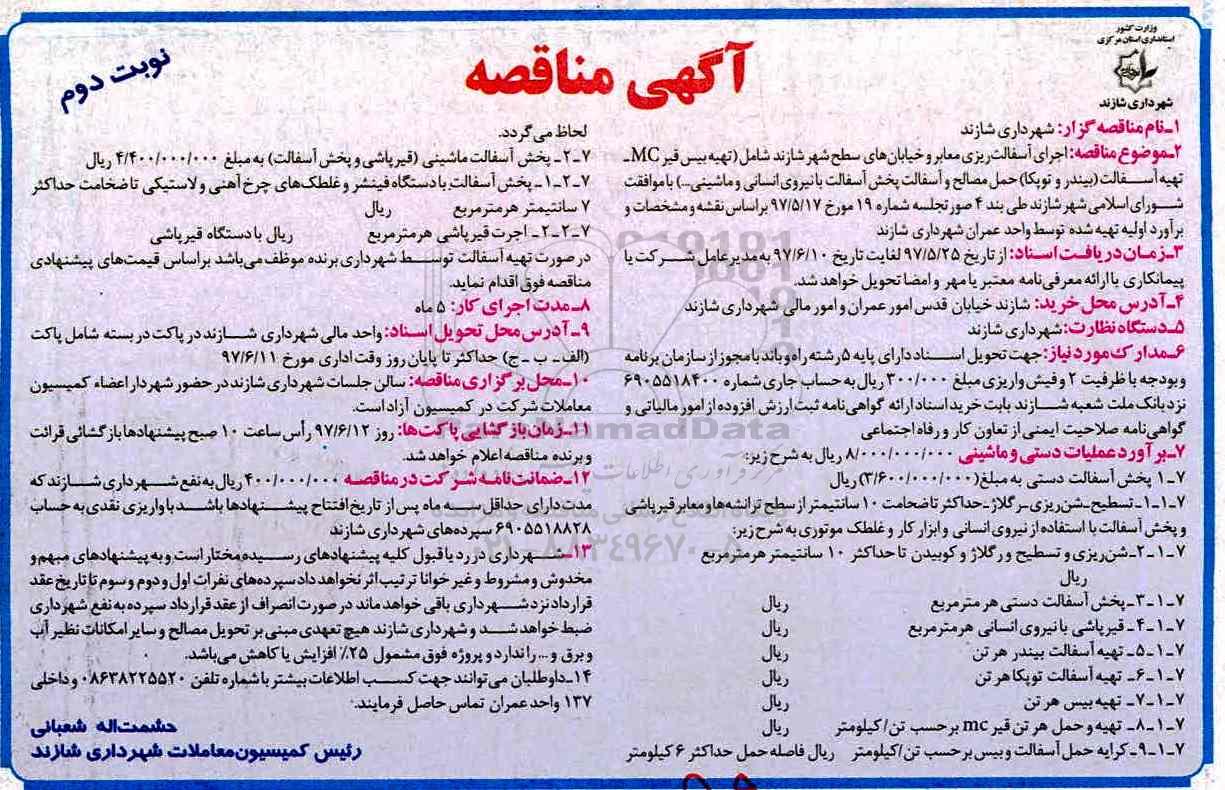 وزارت کشور
استانداری استان مرکزی
شهرداری شازند
آگهی مناقصه
نوبت دوم
۱ـ نام مناقصه گزار: شهرداری شازند
۲ـ موضوع مناقصه: اجرای آسفالت‌ریزی معابر و خیابان‌های سطح شهر شازند شامل (تهیه بیس قیر MC ـ
تهیه آسفالت (بیندر و توپکا) حمل مصالح و آسفالت پخش آسفالت با نیروی انسانی و ماشینی...) با موافقت
شورای اسلامی شهر شازند طی بند ۴ صورتجلسه شماره ۱۹ مورخ ۹۷/۵/۱۷ براساس نقشه و مشخصات و
برآورد اولیه تهیه شده توسط واحد عمران شهرداری شازند
۳ـ زمان دریافت اسناد: از تاریخ ۹۷/۵/۲۵ لغایت تاریخ ۹۷/۶/۱۰ به مدیرعامل شرکت یا
پیمانکاری با ارائه معرفی‌نامه معتبر با مهر و امضا تحویل خواهد شد.
۴ـ آدرس محل خرید: شازند خیابان قدس امور عمران و امور مالی شهرداری شازند
۵ـ دستگاه نظارت: شهرداری شازند
۶ـ مدارک مورد نیاز: جهت تحویل اسناد دارای پایه ۵ رشته راه و باند با مجوز از سازمان برنامه
و بودجه با ظرفیت ۲ و فیش واریزی مبلغ ۳۰۰/۰۰۰ ریال به حساب جاری شماره ۶۹۰۵۵۱۸۴۰۰
نزد بانک ملت شعبه شازند بابت خرید اسناد ارائه گواهی‌نامه ثبت ارزش افزوده از امور مالیاتی و
گواهی‌نامه صلاحیت ایمنی از تعاون کار و رفاه اجتماعی
۷ـ برآورد عملیات دستی و ماشینی ۸/۰۰۰/۰۰۰/۰۰۰ ریال به شرح زیر:
۷ـ۱ پخش آسفالت دستی به مبلغ (۳/۶۰۰/۰۰۰/۰۰۰) ریال
۷ـ۱ـ۱ـ تسطیح ـ شن‌ریزی ـ رگلاژ ـ حداکثر تا ضخامت ۱۰ سانتیمتر از سطح ترانشه‌ها و معابر قیرپاشی
و پخش آسفالت با استفاده از نیروی انسانی و ابزار کار و غلطک موتوری به شرح زیر:
۷ـ۱ـ۲ـ شن‌ریزی و تسطیح و رگلاژ و کوبیدن تا حداکثر ۱۰ سانتیمتر هر مترمربع
ریال
۷ـ۱ـ۳ـ پخش آسفالت دستی هر مترمربع ریال
۷ـ۱ـ۴ـ قیرپاشی با نیروی انسانی هر مترمربع ریال
۷ـ۱ـ۵ـ تهیه آسفالت بیندر هر تن ریال
۷ـ۱ـ۶ـ تهیه آسفالت توپکا هر تن ریال
۷ـ۱ـ۷ـ تهیه بیس هر تن ریال
۷ـ۱ـ۸ـ تهیه و حمل هر تن قیر mc بر حسب تن/کیلومتر ریال
۷ـ۱ـ۹ـ کرایه حمل آسفالت و بیس بر حسب تن/کیلومتر ریال فاصله حمل حداکثر ۶ کیلومتر
لحاظ می‌گردد.
۷ـ۲ـ پخش آسفالت ماشینی (قیرپاشی و پخش آسفالت) به مبلغ ۴/۴۰۰/۰۰۰/۰۰۰ ریال
۷ـ۲ـ۱ـ پخش آسفالت با دستگاه فینشر و غلطک‌های چرخ آهنی و لاستیکی تا ضخامت حداکثر
۷ سانتیمتر هر مترمربع ریال
۷ـ۲ـ۲ـ اجرت قیرپاشی هر مترمربع ریال با دستگاه قیرپاشی
در صورت تهیه آسفالت توسط شهرداری برنده موظف می‌باشد براساس قیمت‌های پیشنهادی
مناقصه فوق اقدام نماید.
۸ـ مدت اجرای کار: ۵ ماه
۹ـ آدرس محل تحویل اسناد: واحد مالی شهرداری شازند در پاکت در بسته شامل پاکت
(الف ـ ب ـ ج) حداکثر تا پایان روز وقت اداری مورخ ۹۷/۶/۱۱
۱۰ـ محل برگزاری مناقصه: سالن جلسات شهرداری شازند در حضور شهردار اعضاء کمیسیون
معاملات شرکت در کمیسیون آزاد است.
۱۱ـ زمان بازگشایی پاکت‌ها: روز ۹۷/۶/۱۲ رأس ساعت ۱۰ صبح پیشنهادها بازگشائی قرائت
و برنده مناقصه اعلام خواهد شد.
۱۲ـ ضمانت‌نامه شرکت در مناقصه ۴۰۰/۰۰۰/۰۰۰ ریال به نفع شهرداری شازند که
مدت دارای حداقل سه ماه پس از تاریخ افتتاح پیشنهادها باشد با واریزی نقدی به حساب
۶۹۰۵۵۱۸۸۲۸ سپرده‌های شهرداری شازند
۱۳ـ شهرداری در رد یا قبول کلیه پیشنهادهای رسیده مختار است و به پیشنهادهای مبهم و
مخدوش و مشروط و غیر خوانا ترتیب اثر نخواهد داد سپرده‌های نفرات اول و دوم و سوم تا تاریخ عقد
قرارداد نزد شهرداری باقی خواهد ماند در صورت انصراف از عقد قرارداد سپرده به نفع شهرداری
ضبط خواهد شد و شهرداری شازند هیچ تعهدی مبنی بر تحویل مصالح و سایر امکانات نظیر آب
و برق و... را ندارد و پروژه فوق مشمول ۲۵٪ افزایش یا کاهش می‌باشد.
۱۴ـ داوطلبان می‌توانند جهت کسب اطلاعات بیشتر با شماره تلفن ۰۸۶۳۸۲۲۵۵۲۰ و داخلی
۱۳۷ واحد عمران تماس حاصل فرمایند.
حشمت‌اله شعبانی
رئیس کمیسیون معاملات شهرداری شازند